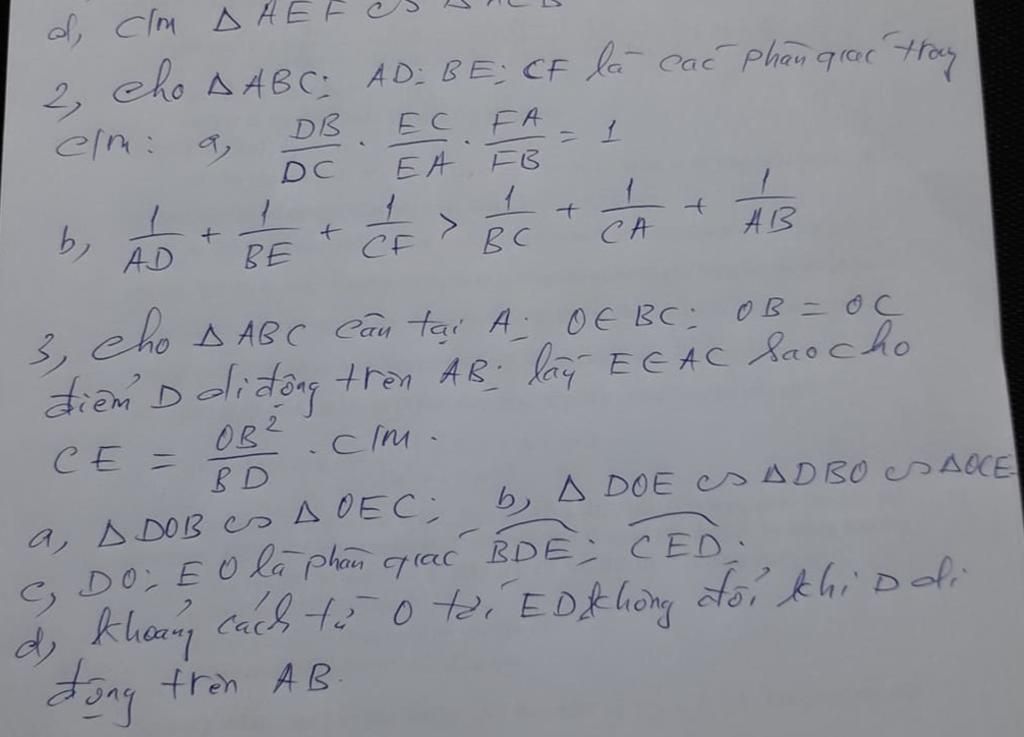 d, C/m △AEF ∽ △ACB
2, Cho △ABC; AD; BE; CF là các phân giác trong
C/m: a, DB/DC . EC/EA . FA/FB = 1
b, 1/AD + 1/BE + 1/CF > 1/BC + 1/CA + 1/AB
3, Cho △ABC cân tại A; O∈BC; OB = OC
điểm D di động trên AB; lấy E∈AC sao cho
CE = OB²/BD . C/m.
a, △DOB ∽ △OEC; b, △DOE ∽ △DBO ∽ △OCE
c, DO; EO là phân giác BDE; CED;
d, khoảng cách từ O tới ED không đổi khi D di
động trên AB.